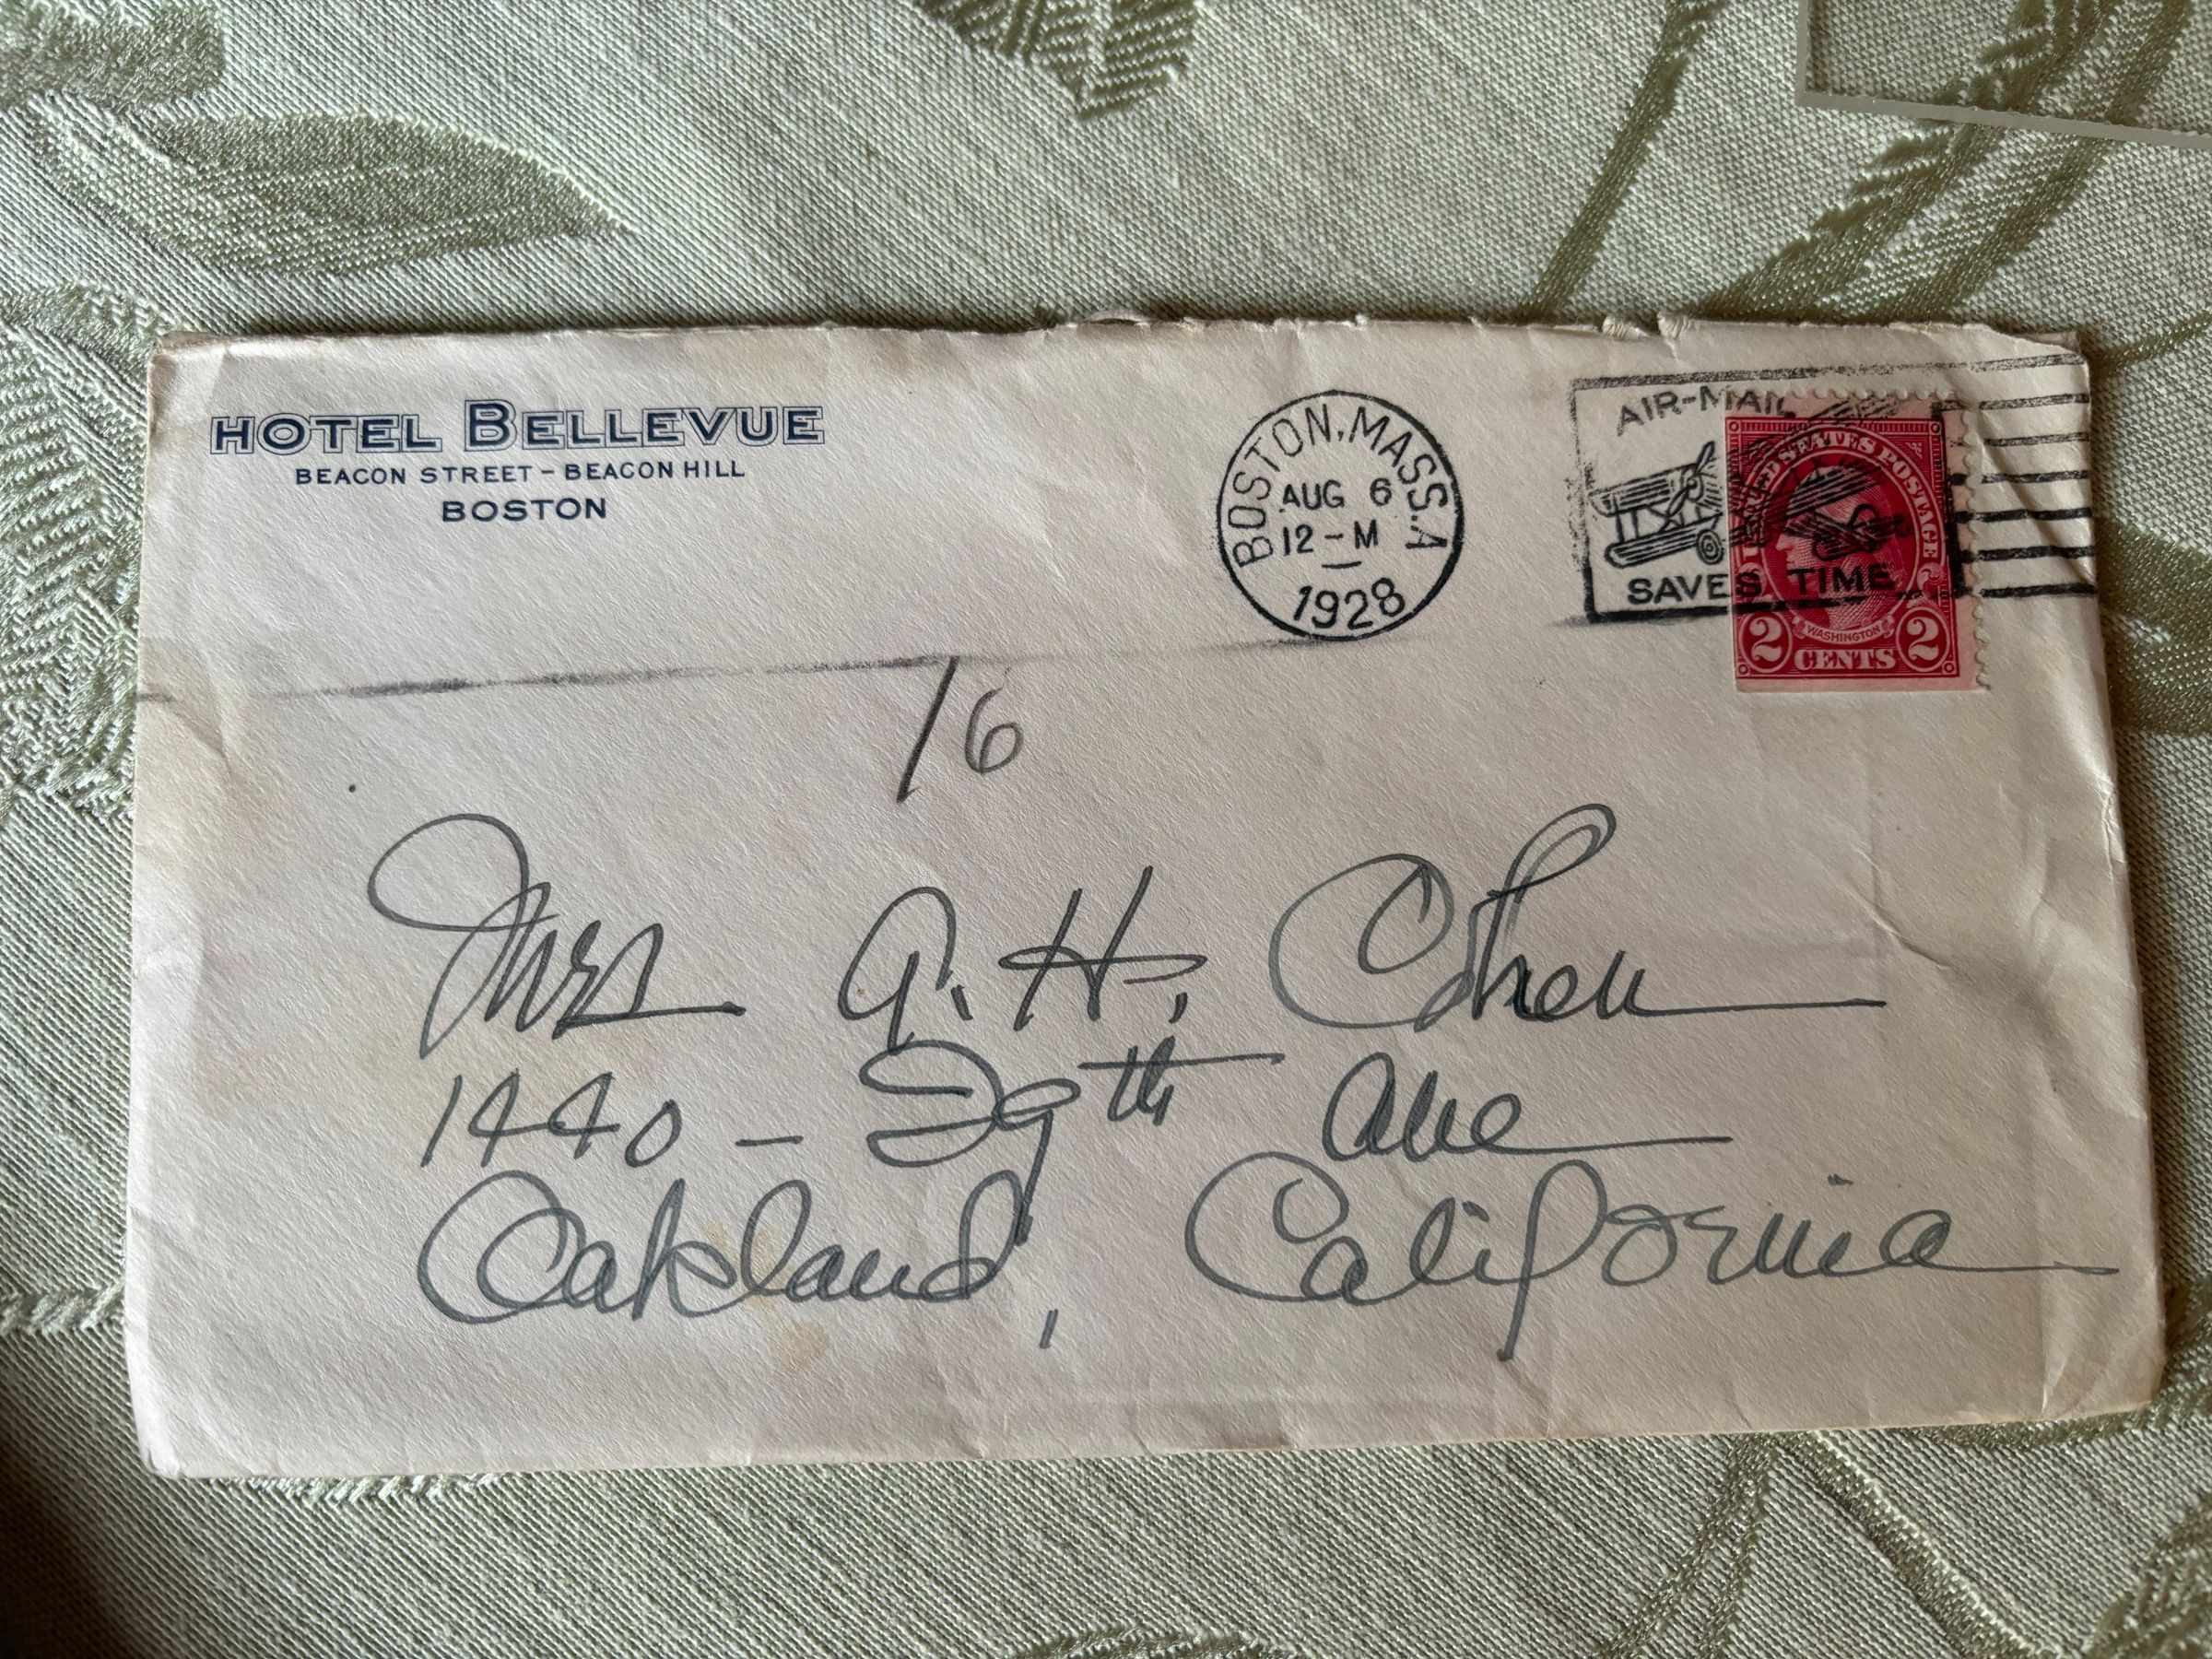 HOTEL BELLEVUE
BEACON STREET - BEACON HILL
BOSTON
BOSTON, MASS. A
AUG 6
12 - M
1928
AIR-MAIL
SAVES TIME
UNITED STATES POSTAGE
WASHINGTON
2 CENTS 2
16
Mrs A. H. Cohen
1440 - 29th Ave
Oakland, California